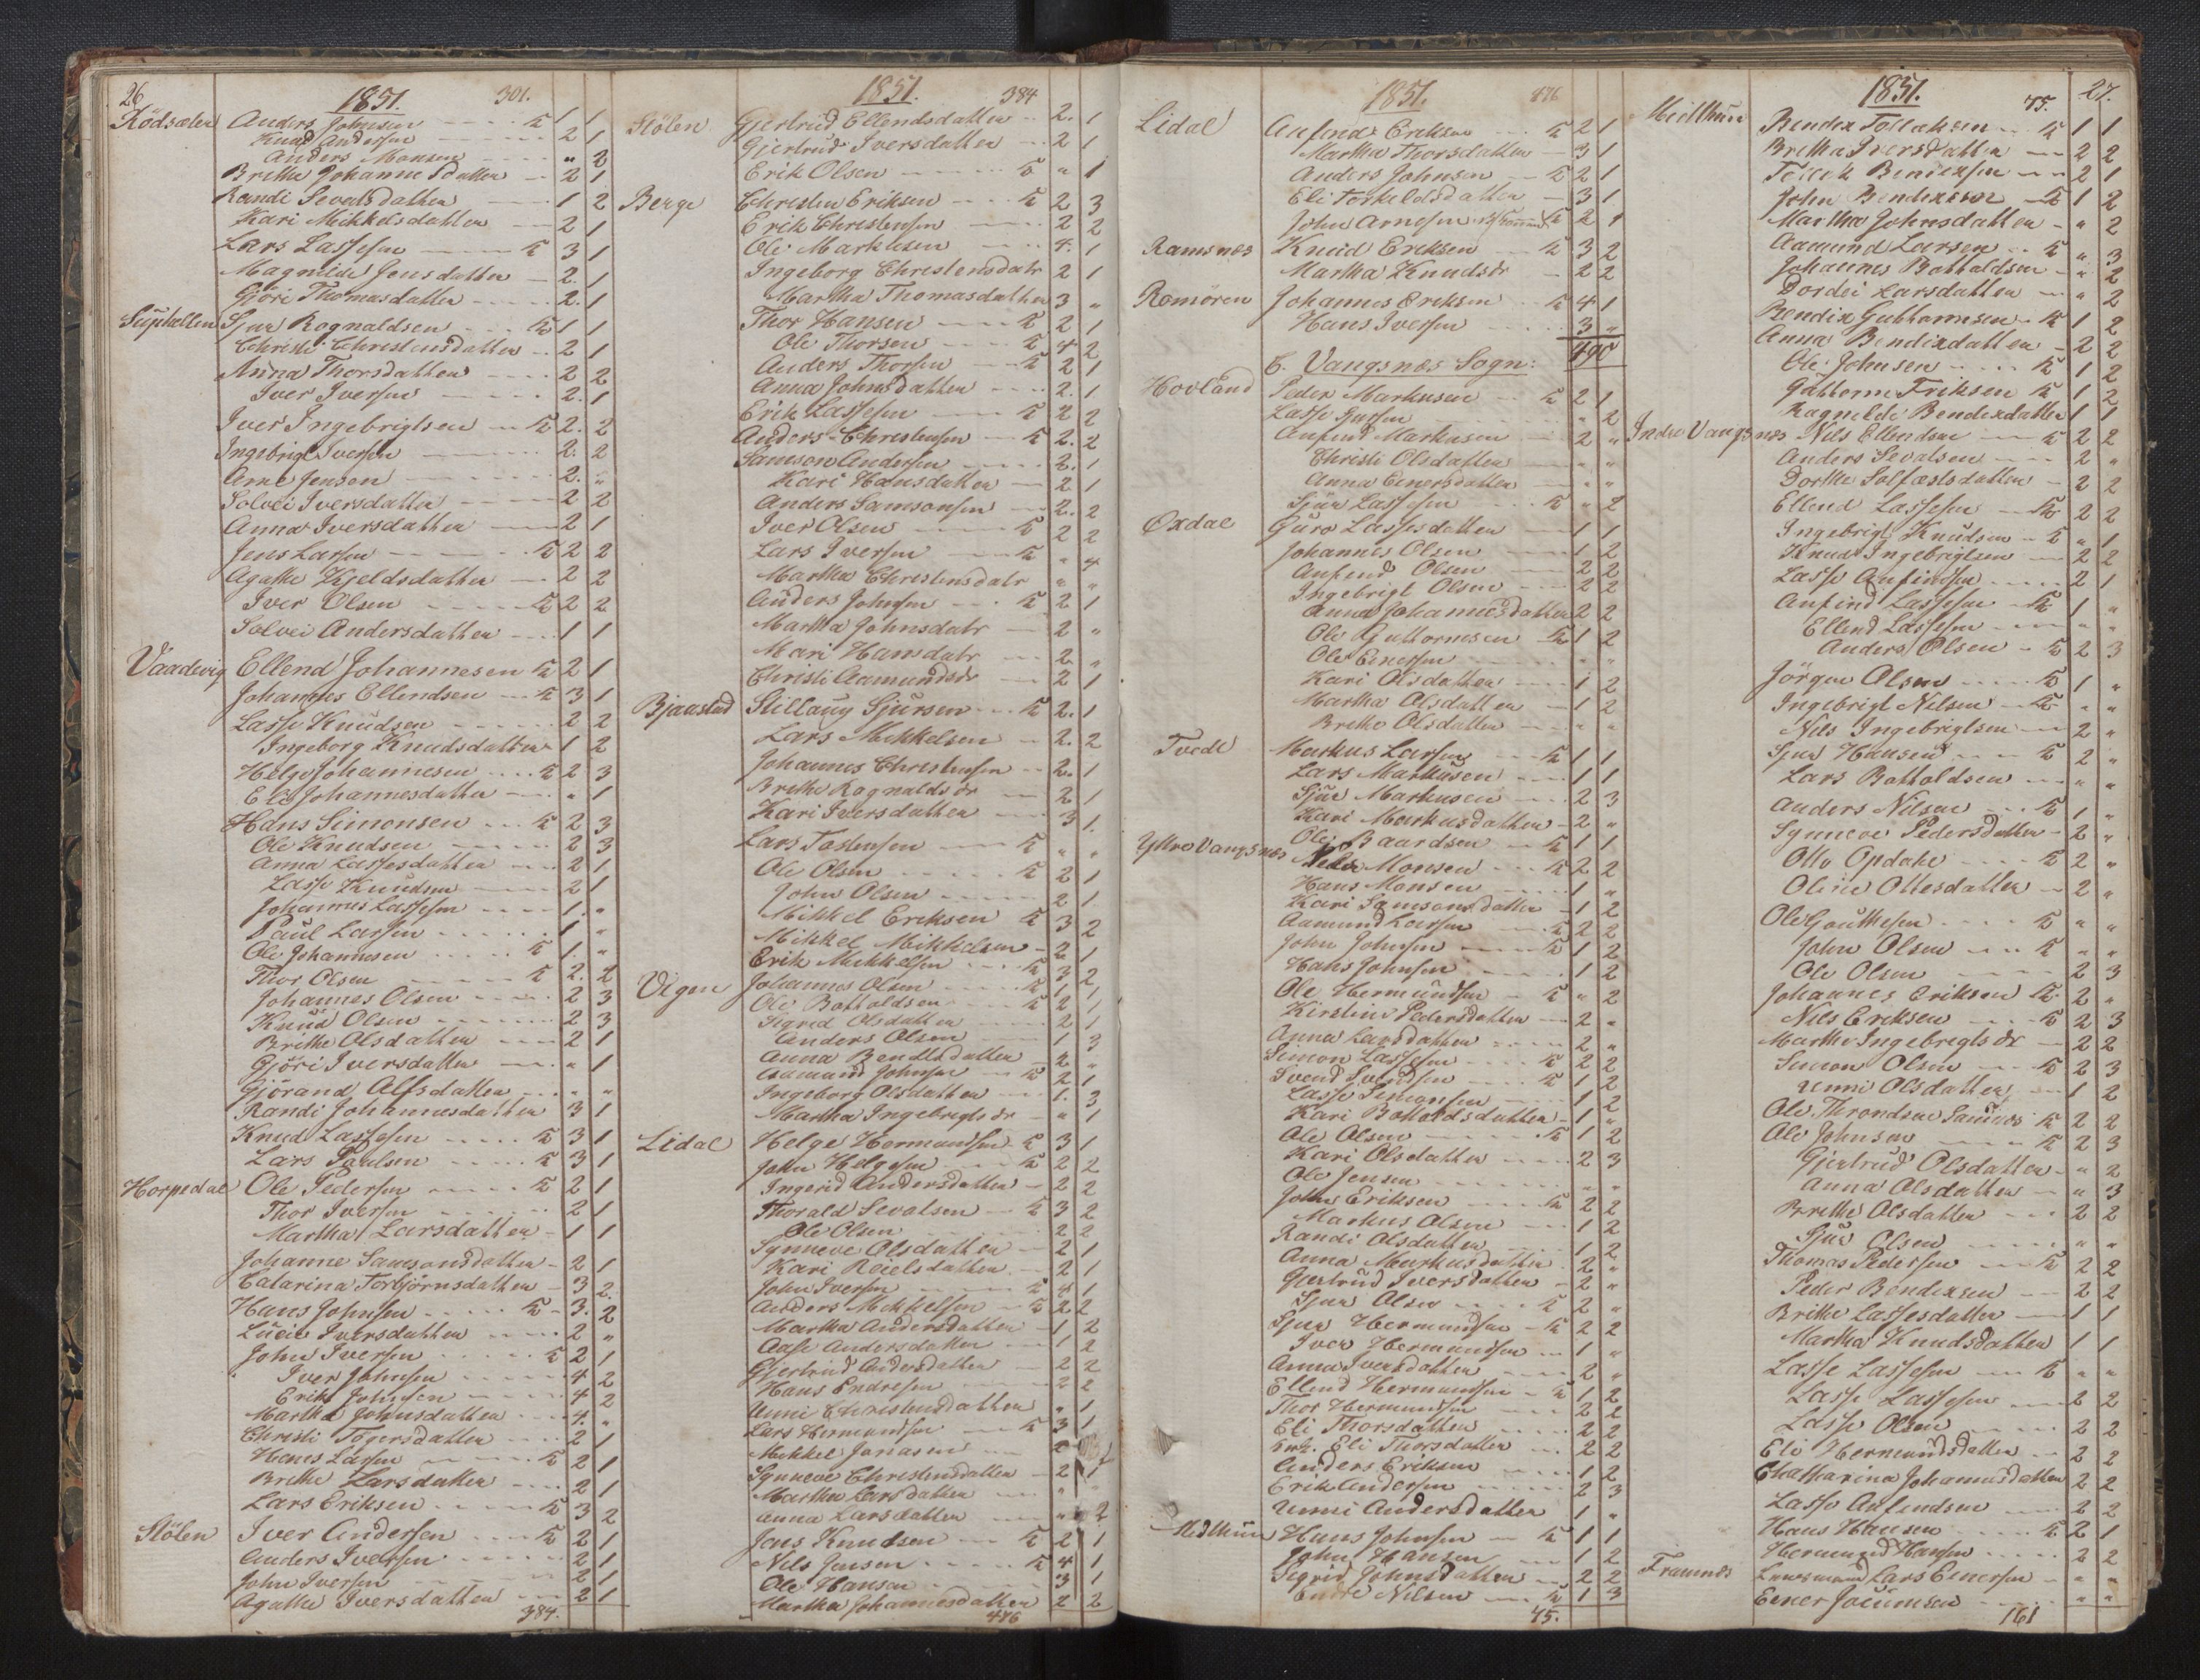 26
1851.
301.
Anders Johnsen K 1 1
Knud Andersen 2 1
Anders Monsen " 2
Brithe Johannesdatter 2 1
Randi Sevatsdatter 1 2
Kari Mikkelsdatter 2 1
Lars Lassesen K 3 1
Magnilde Jensdatter 2. 1
Gjøri Thomasdatter 2. 1
Sjur Rognaldsen K 1 1
Christi Christensdatter 2 1
Anna Thorsdatter 2 2
Iver Iversen 2. 1
Iver Ingebrigtsen K 2. 2
Ingebrigt Iversen 2. 2
Arne Jensen 2. "
Solvei Iversdatter 2 2
Anna Iversdatter 2 1
Jens Larsen K 2 2
Agathe Kjeldsdatter 2 2
Iver Olsen K 2 2
Solvei Andersdatter 1 1
Vaadevig Ellend Johannesen K 2 1
Johannes Ellendsen K 3 1
Lasse Knudsen 2 2
Ingeborg Knudsdatter 1 2
Helge Johannesen K 2 3
Eli Johannesdatter " 1
Hans Simonsen K 2 3
Ole Knudsen 2 3
Anna Lassesdatter 2 1
Lasse Knudsen 2 1
Johannes Lassesen 1. "
Paul Larsen 1 "
Ole Johannesen K 1. "
Thor Olsen K 2. 2
Johannes Olsen 2 3
Knud Olsen 2 3
Brithe Olsdatter 2 1
Gjøri Iversdatter " 1
Gjørand Alfsdatter " "
Randi Johannesdatter 3 1
Knud Lassesen K 3 1
Lars Paulsen K 3 1
Horpedal Ole Pedersen K 2 1
Thor Iversen 2 1
Martha Larsdatter 1 1
Johanne Samsonsdatter 2 1
Catarina Torbjørnsdatter 3 2.
Hans Johnsen K 3. 2
Lucie Iversdatter 2 "
John Iversen K 2 1
Iver Johnsen 4 2
Erik Johnsen 4 2
Martha Johnsdatter 4. "
Christi Togersdatter 2 1
Hans Larsen K 2 1
Brithe Larsdatter 2 1
Lars Eriksen K 3 2
Stølen Iver Andersen K 2 1
Anders Iversen 2 1
John Iversen 2 1
Agathe Iversdatter 2 1
384.
1851.
384
Stølen Gjertrud Ellendsdatter 2. 1
Gjertrud Iversdatter 2 1
Erik Olsen K " 1
Berge Christen Eriksen K 2 3
Erik Christensen 2 2
Ole Markusen 4. 1
Ingeborg Christensdatr 2 1
Martha Thomasdatter 3 "
Thor Hansen K 2 1
Ole Thorsen K 4 2
Anders Thorsen K 2 1
Anna Johnsdatter 2. 1
Erik Lassesen K 2 2
Anders Christensen K 2. 2
Samson Andersen 2. 1
Kari Hansdatter 2 1
Anders Samsonsen 2. 2
Iver Olsen K 2 2
Lars Iversen K " 4
Martha Christensdatr " "
Anders Johnsen K 2 1
Martha Johnsdatr 2 "
Mari Hansdatr 2 "
Christi Aamundsdr 2 1
Bjaastad Stillaug Sjursen K 2. 1
Lars Mikkelsen 2. 2
Johannes Christensen 2. 1
Brithe Rognaldsdr 2 1
Kari Iversdatter 3 1.
Lars Tostensen K " "
Ole Olsen K 2 1
John Olsen 2 1
Mikkel Eriksen K 3 2
Mikkel Mikkelsen 2 1
Erik Mikkelsen K 3 2
Vigen Johannes Olsen K 1 1
Ole Bottoldsen K 2 1
Sigrid Olsdatter 2 1
Anders Olsen 1 3
Anna Bendtsdatter 2 "
Aamund Johnsen K 2 1
Ingeborg Olsdatter 1. 3
Martha Ingebrigtsdr " 1
Lidal Helge Hermundsen K 3 1
John Helgesen K 2 2
Ingerid Andersdatter 2 2
Thorald Sevatsen K 3 2
Ole Olsen 2 2
Synneve Olsdatter 2 1
Kari Reielsdatter 2 1
John Iversen K 4 1
Anders Mikkelsen K 2 2
Martha Andersdatter 1 2
Aase Andersdatter 1 2
Gjertrud Andersdatter 2 2
Hans Endresen 2 2
Unni Christensdatter " 1
Lars Hermundsen K 3 1
Mikkel Jonasen
Synneve Christensdatter 2 1
Martha Larsdatter
Anna Larsdatter " 2
Jens Knudsen K 2 1
Nils Jensen K 4 1
Ole Hansen 3 1
Martha Johannesdatter 2 2
476
1851.
476
Lidal Anfind Eriksen K 2 1
Martha Thorsdatter 3 1
Anders Johnsen K 2 1
Eli Torkeldsdatter 3 1
John Arnesen K 2 1
Ramsnæs Knud Eriksen K 3 2
Martha Knudsdr 2 2
Romøren Johannes Eriksen K 4 1
Hans Iversen 3 "
490
C. Vangsnæs Sogn:
Hovland Peder Markusen K 2 1
Lasse Sjursen " 2
Anfind Markusen 2 "
Christi Olsdatter " "
Anna Einersdatter " "
Sjur Lassesen K " 2
Oxdal Guro Lassesdatter 1 1
Johannes Olsen 1 2
Anfind Olsen 2 2
Ingebrigt Olsen 2 2
Anna Johannesdatter 2 2
Ole Guttormsen K 1 2
Ole Einersen " "
Kari Olsdatter 1 2
Martha Olsdatter 1 2
Brithe Olsdatter " "
Tvedt Markus Larsen K 1 1
Lars Markusen 1 1
Sjur Markusen 2 3
Kari Markusdatter 2 "
Ole Baardsen K 1 1
Yttre Vangsnæs Peder Monsen K 2 2
Hans Monsen 1 "
Kari Samsonsdatter 1 2
Aamund Larsen K 2 2
John Johnsen K 1 2
Hans Johnsen 1 2
Ole Hermundsen K " 2
Kirstine Pedersdatter 2 "
Anna Larsdatter 2 "
Simon Lassesen K 2 2
Svend Svendsen K 1 2
Lasse Simonsen 1 2
Kari Bottoldsdatter 1 "
Ole Olsen K 1 2
Kari Olsdatter 2 3
Ole Jensen " "
John Eriksen K 2 2
Markus Olsen 1 2
Randi Olsdatter 1 2
Anna Markusdatter 2 "
Gjertrud Iversdatter 2 "
Sjur Olsen K 2 "
Sjur Hermundsen K 2 2
Iver Hermundsen 1 "
Anna Iversdatter 2 "
Ellend Hermundsen K 1 2
Thor Hermundsen 2 2
Eli Thorsdatter 2 2
Enk. Eli Thorsdatter 2 2
Anders Eriksen 1 2
Erik Andersen 2 3
Unni Andersdatter 1 "
Midthun Hans Johnsen K 1 1
John Hansen 1 2
Sigrid Johnsdatter 2 2
Endre Nilsen K 1 3
75.
1851.
75.
27.
Midthun Bendix Tollaksen K 1 1
Brithe Iversdatter 2 2
Tollak Bendixsen 2 1
John Bendixsen K 1 2
Martha Johnsdatter " 2
Aamund Larsen K " 3
Johannes Bottoldsen " 2
Dordei Larsdatter " 2
Bendix Guttormsen K 1 2
Anna Bendixdatter 2 2
Ole Johnsen K 1 2
Guttorm Eriksen K 1 2
Ragnilde Bendixdatter 1 1
Indre Vangsnæs Nils Ellendsen K 2 2
Anders Sevatsen 2 "
Dorthe Solfæstsdatter 2 2
Ellend Lassesen K 2 2
Ingebrigt Knudsen K " 1
Knud Ingebrigtsen 2 2
Lasse Anfindsen 2 1
Anfind Lassesen K 1 "
Ellend Lassesen " "
Anders Olsen K 2 3
Jørgen Olsen K 1 "
Ingebrigt Nilsen K " "
Nils Ingebrigtsen 2 "
Sjur Hansen K 2 "
Lars Bottoldsen " "
Anders Nilsen K 1 "
Synneve Pedersdatter 2 "
Otto Opdahl K 2 "
Oline Ottesdatter 2 "
Ole Gouthesen K " "
John Olsen K " "
Ole Olsen 2 3
Johannes Eriksen K 2 "
Nils Eriksen K 2 3
Marthe Ingebrigtsdr 2 2
Simon Olsen K 2 3
Unni Olsdatter 1 2
Ole Throndsen K 2 2
Ole Johnsen K 2 3
Gjertrud Olsdatter " 2
Anna Olsdatter " 3
Brithe Olsdatter 2 2
Sjur Olsen " "
Thomas Pedersen K 2 2
Peder Bendixsen 2 2
Brithe Lassesdatter 1 1
Martha Knudsdatter 1 1
Lasse Lassesen K " "
Lasse Lassesen 2 2
Lasse Olsen 2 2
Eli Hermundsdatter 2 2
Chatharina Johannesdatter 2 2
Lasse Anfindsen 2 2
Hans Hansen K 2 1
Hermund Hansen 2 2
Framnæs Lars Einersen " "
Einer Joensen " "
161